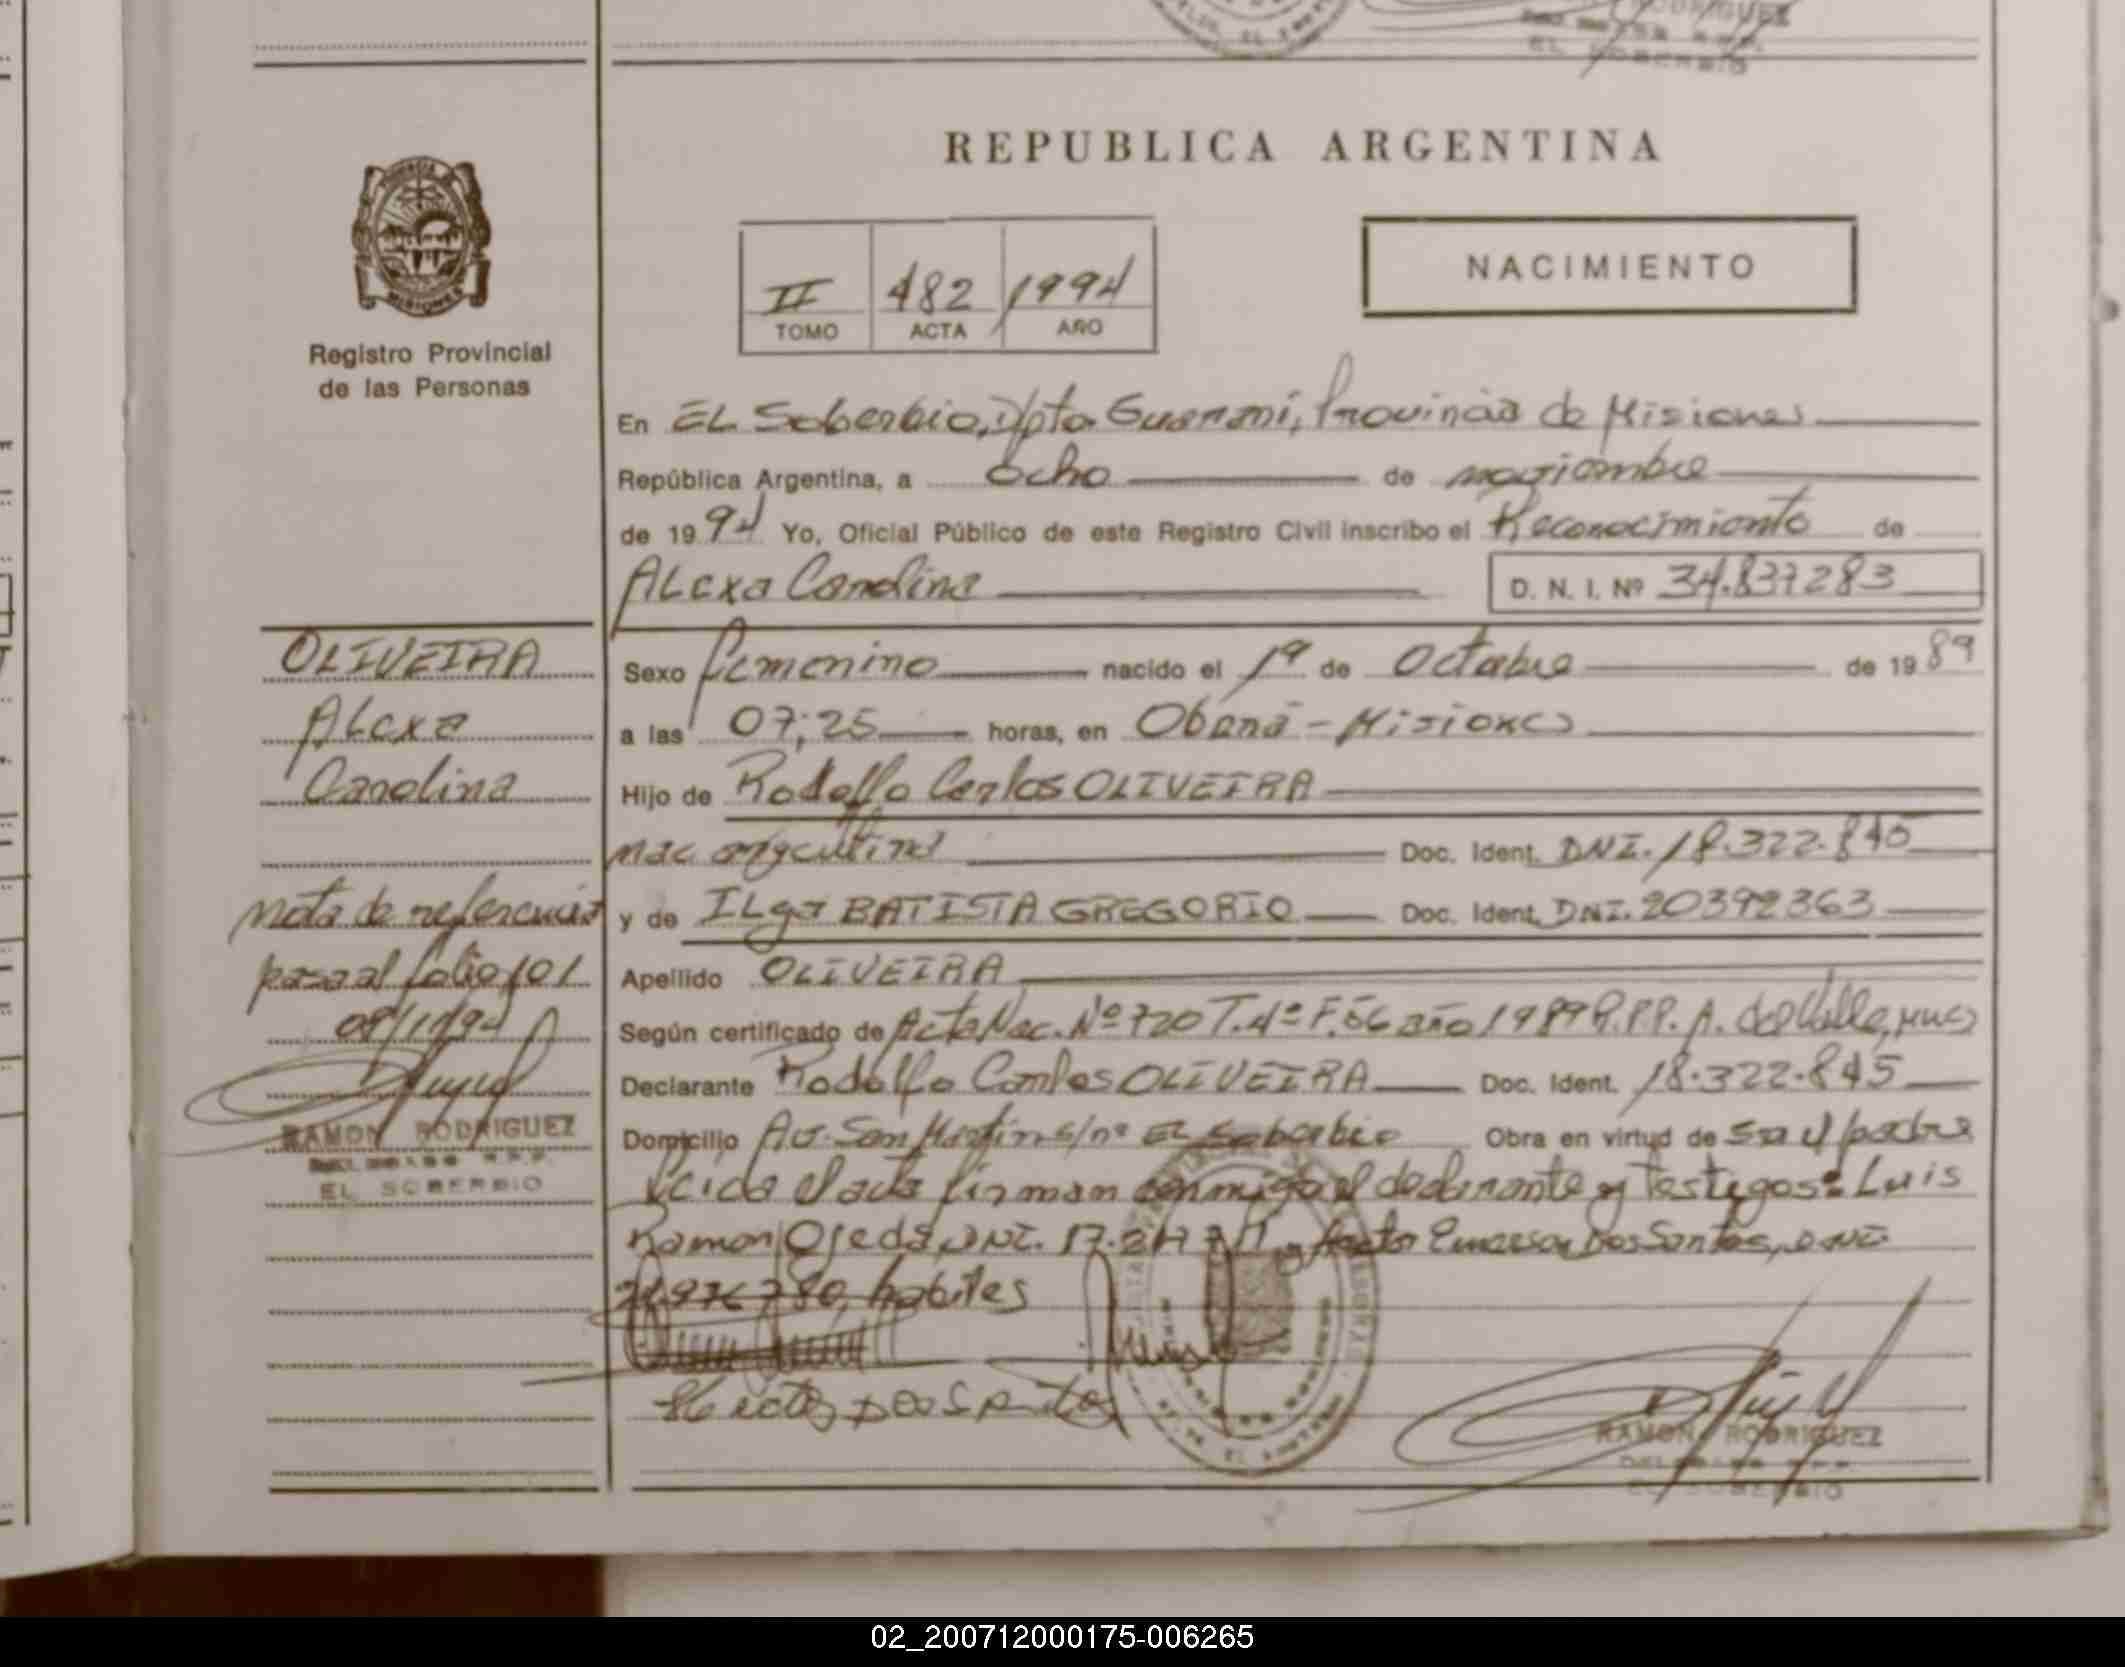 REPUBLICA ARGENTINA
NACIMIENTO
II 482 1994
TOMO ACTA AÑO
Registro Provincial
de las Personas
En EL Soberbio, Dpto Guaraní, Provincia de Misiones
República Argentina, a ocho de noviembre
de 1994 Yo, Oficial Público de este Registro Civil inscribo el Reconocimiento de
ALexa Carolina D. N. I. Nº 34.837283
OLIVEIRA
ALexa
Carolina
nota de referencia
pasa al folio 101
08/11/94
RAMON RODRIGUEZ
EL SOBERBIO
Sexo femenino nacido el 1º de Octubre de 1989
a las 07;25 horas, en Oberá - Misiones
Hijo de Rodolfo Carlos OLIVEIRA
nac argentina Doc. Ident. DNI. 18.322.845
y de ILga BATISTA GREGORIO Doc. Ident. DNI. 20392363
Apellido OLIVEIRA
Según certificado de Acta Nac. Nº 720 T. 4º F. 56 año 1989 R.P.P. A. del Valle, Mnes
Declarante Rodolfo Carlos OLIVEIRA Doc. Ident. 18.322.845
Domicilio Av. San Martin s/nº EL Soberbio Obra en virtud de ser el padre
Leida el acta firman conmigo el declarante y Testigos: Luis
Ramon Ojeda, DNI. 17. y Hector Emerson Dos Santos, DNI.
habiles
RAMON RODRIGUEZ
EL SOBERBIO
02_200712000175-006265